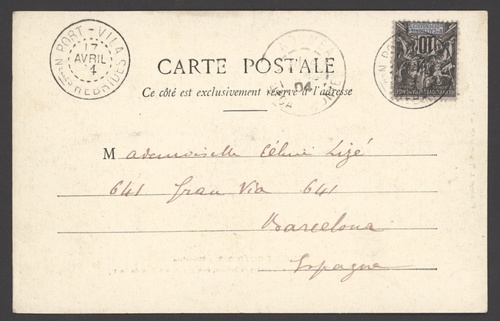 PORT-VILA
17
AVRIL
4
Nlles HEBRIDES
CARTE POSTALE
Ce côté est exclusivement réservé à l'adresse
04
10
PORT
Mademoiselle Célini Lizé
641 Gran Via 641
Barcelona
Espagne